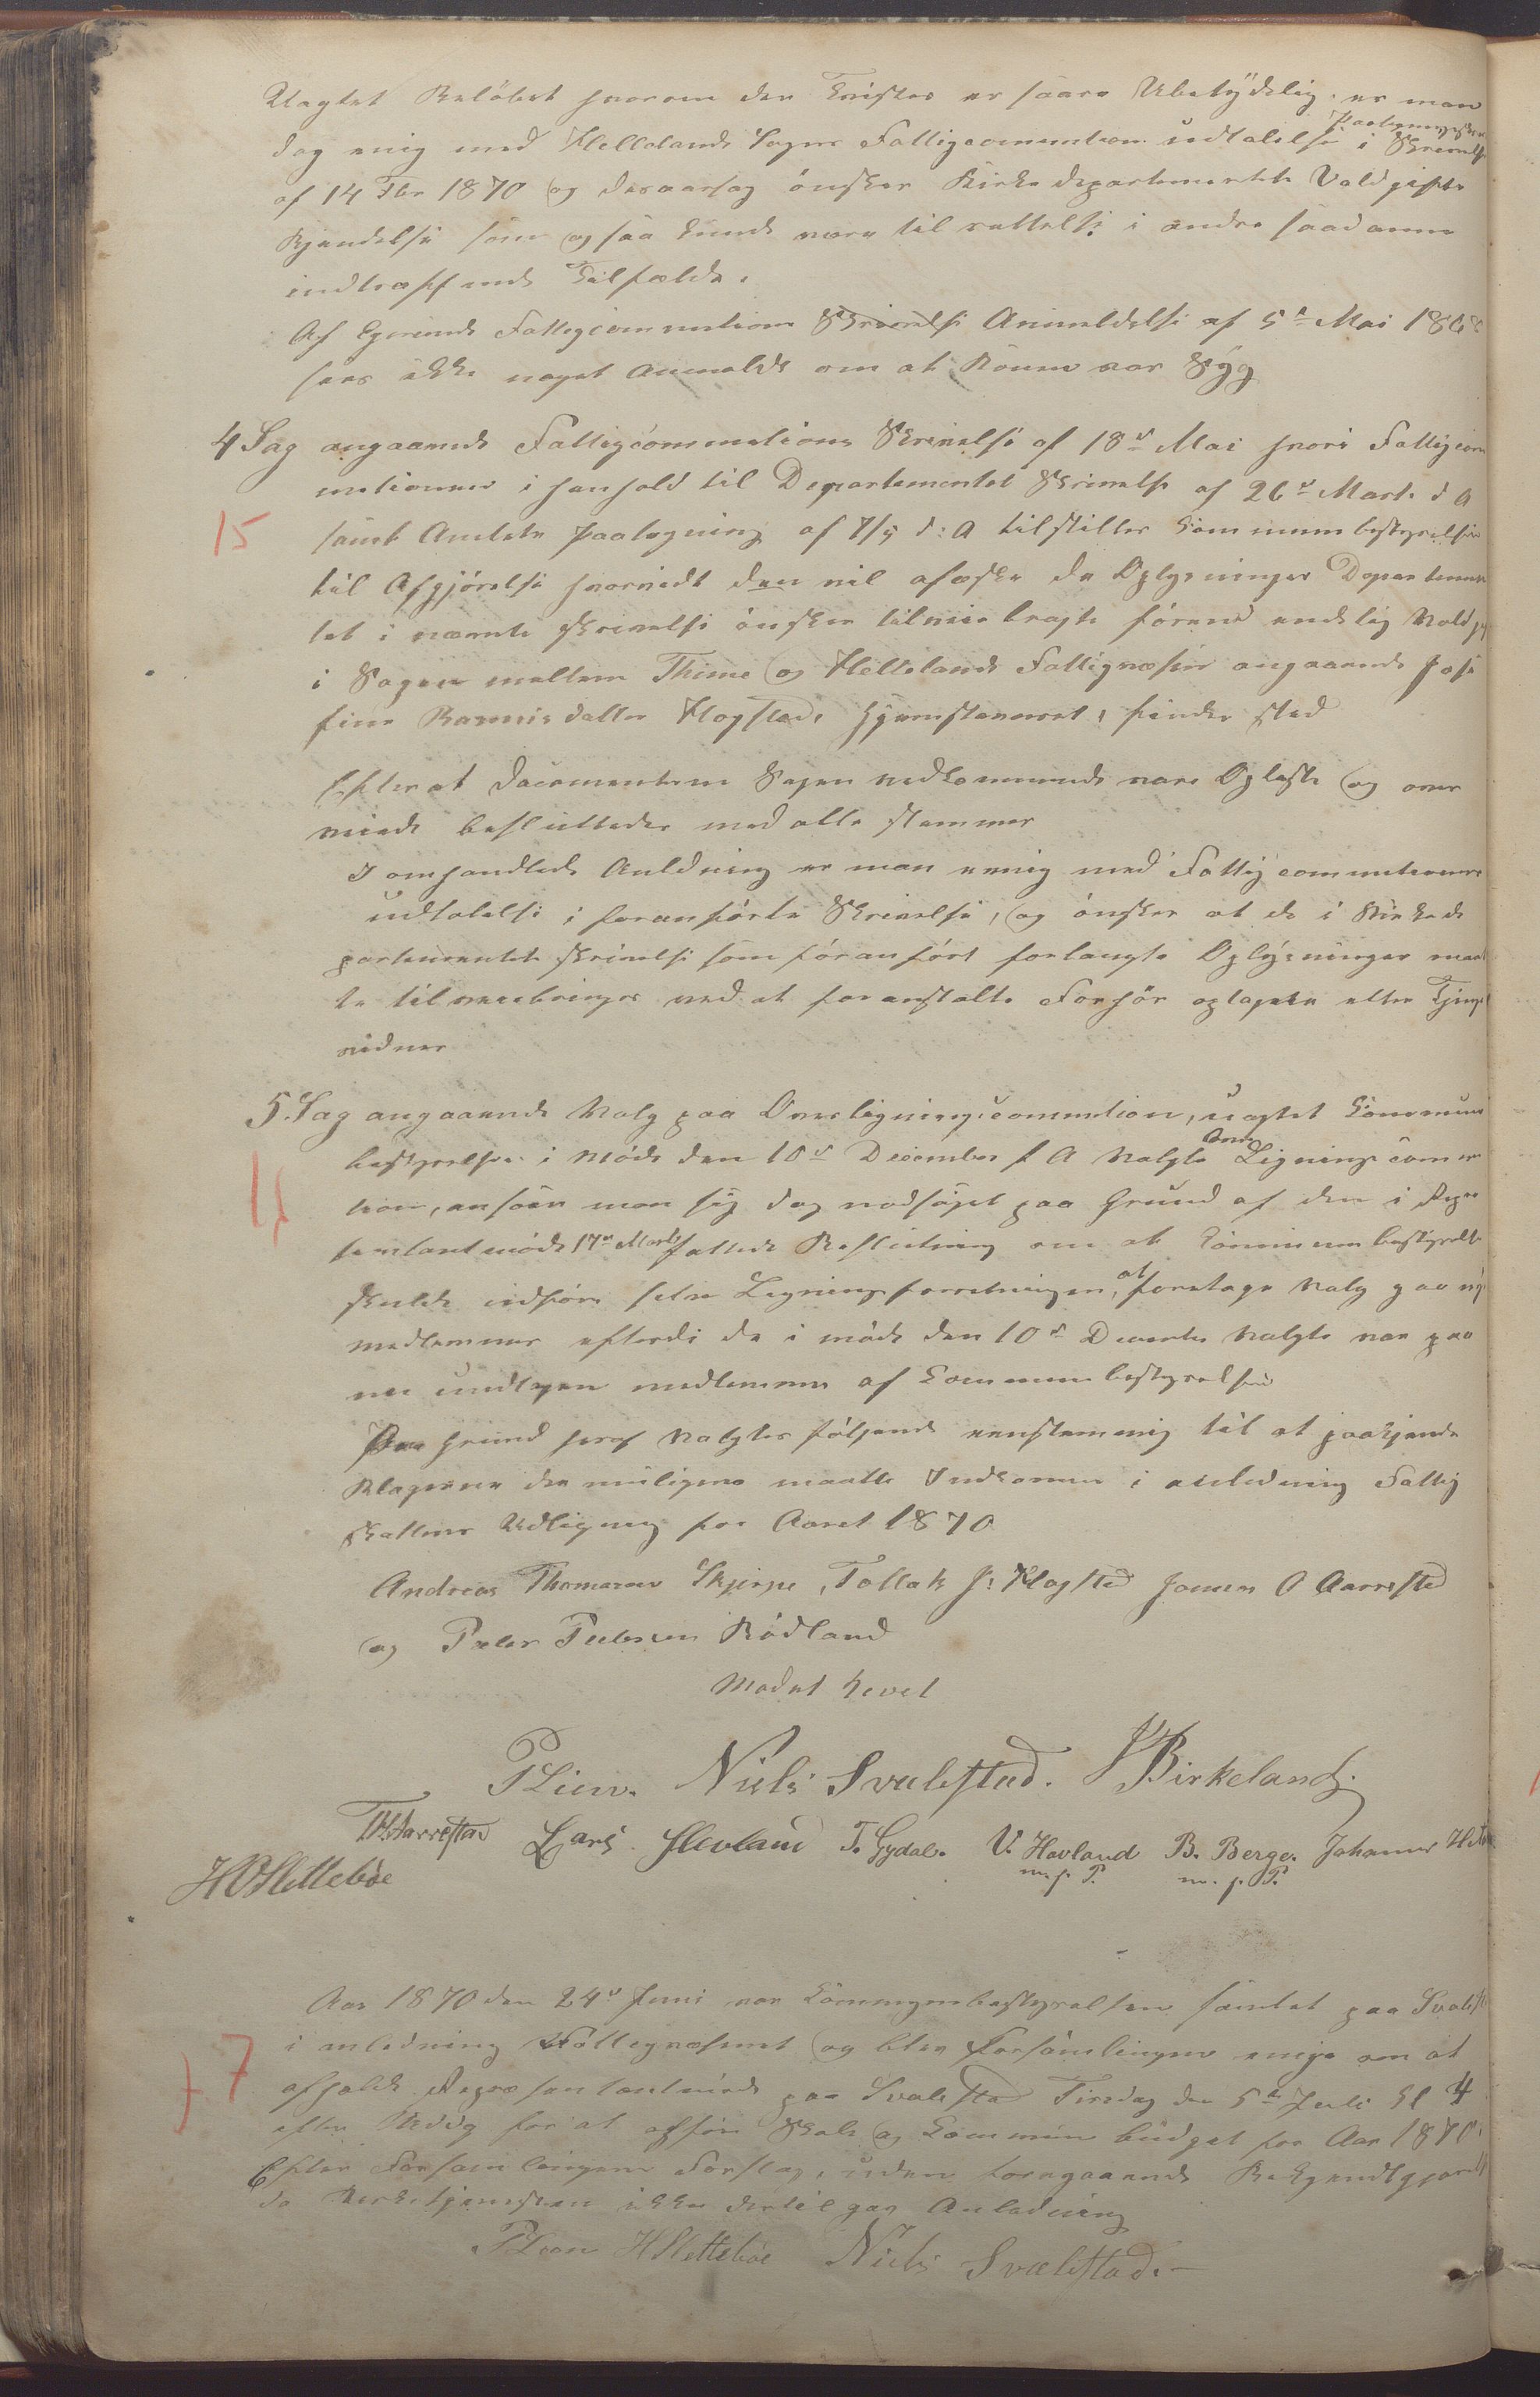 Uagtet Beløbet hvorom der tvistes er saare Ubetydelig er man
dog enig med Hellelands Sogns Fattigcommission udtalelse i Paategningsskrivelse
af 14 Fbr 1870 og desaarsag ønsker Kirkedepartementets Voldgifts
Kjendelse som ogsaa kunde være til rettelse i andre saadanne
indtræffende Tilfælde.
Af Egersunds Fattigcommissions Skrivelse Anmeldelse af 5te Mai 186
sees ikke noget Anmeldt om at Konen var Syg
4 Sag angaaende Fattigcommissions Skrivelse af 18de Mai hvori Fattigcom
missionen i henhold til Departementets Skrivelse af 26de Marts d A
15
samt Amtets Paategning af 7/5 d: A tilstiller Communbestyrelsen
til Afgjørelse hvorvidt den vil afæske de Oplysninger Departemen
tet i nævnte Skrivelse ønsker tilveiebragte førend endelig Voldg
i Sagen mellem Thime og Hellelands Fattigvæsen angaaende Jose
fine Rasmusdatter Slogsteds hjemstavnsret, finder sted
Efterat Documenterne Sagen vedkommende vare Oplæste og over
veiede besluttedes med alle stemmer
I omhandlede Anledning er man enig med Fattigcommissionens
udtalelse i foranførte Skrivelse, og ønsker at de i Kirkede
partementets Skrivelse som foranført forlangte Oplysninger maat
te tilveiebringes ved at foranstalte Forhør optagen eller Things
vidner
5. Sag angaaende Valg paa Overligningscommission, uagtet Commun
bestyrelsen i Møde den 10de December f A Valgte Over Lignings comm
16
sion, anseer man sig dog nødsaget paa Grund af den i Repræ
sentantmøde 17de Marts fattede Beslutning om at Communbestyrelse
skulde udføre selve Ligningsforretningen, at foretage Valg paa ny
medlemmer efterdi de i møde den 10de December Valgte var paa
en undtagen medlemmer af Communbestyrelsen
Paa Grund heraf Valgtes følgende eenstemmig til at paakjende
Klagerne der muligens maatte Indkomme i anledning Fattig
skattens Udligning for Aaret 1870
Andreas Thomassen Skjerpe, Tollak J: Slogsted Jonas O Aarrestad
og Peder Pedersen Rødland
Mødet hevet
P Lien. Niels Svalestad. J Birkeland.
TH Aarrestad Lars Hovland T. Gydal. V. Hovland B. Berge. Johannes
m. f. P. m. f. P.
H O Slettebøe
Aar 1870 den 24de Juni var Communbestyrelsen samlet paa Svalest
i anledning Fattigvæsenet og blev Forsamlingen enige om at
17
afholde Repræsentantmøde paa Svalestad Tirsdag den 5te Juli Kl 4
efter Middag for at opføre Skole og Commune budget for Aar 1870.
Efter Forsamlingens Forslag, uden foregaaende Bekjendtgjørelse
da Kirketjenesten ikke dertil gav Anledning
P Lien H Slettebøe Niels Svalestad.